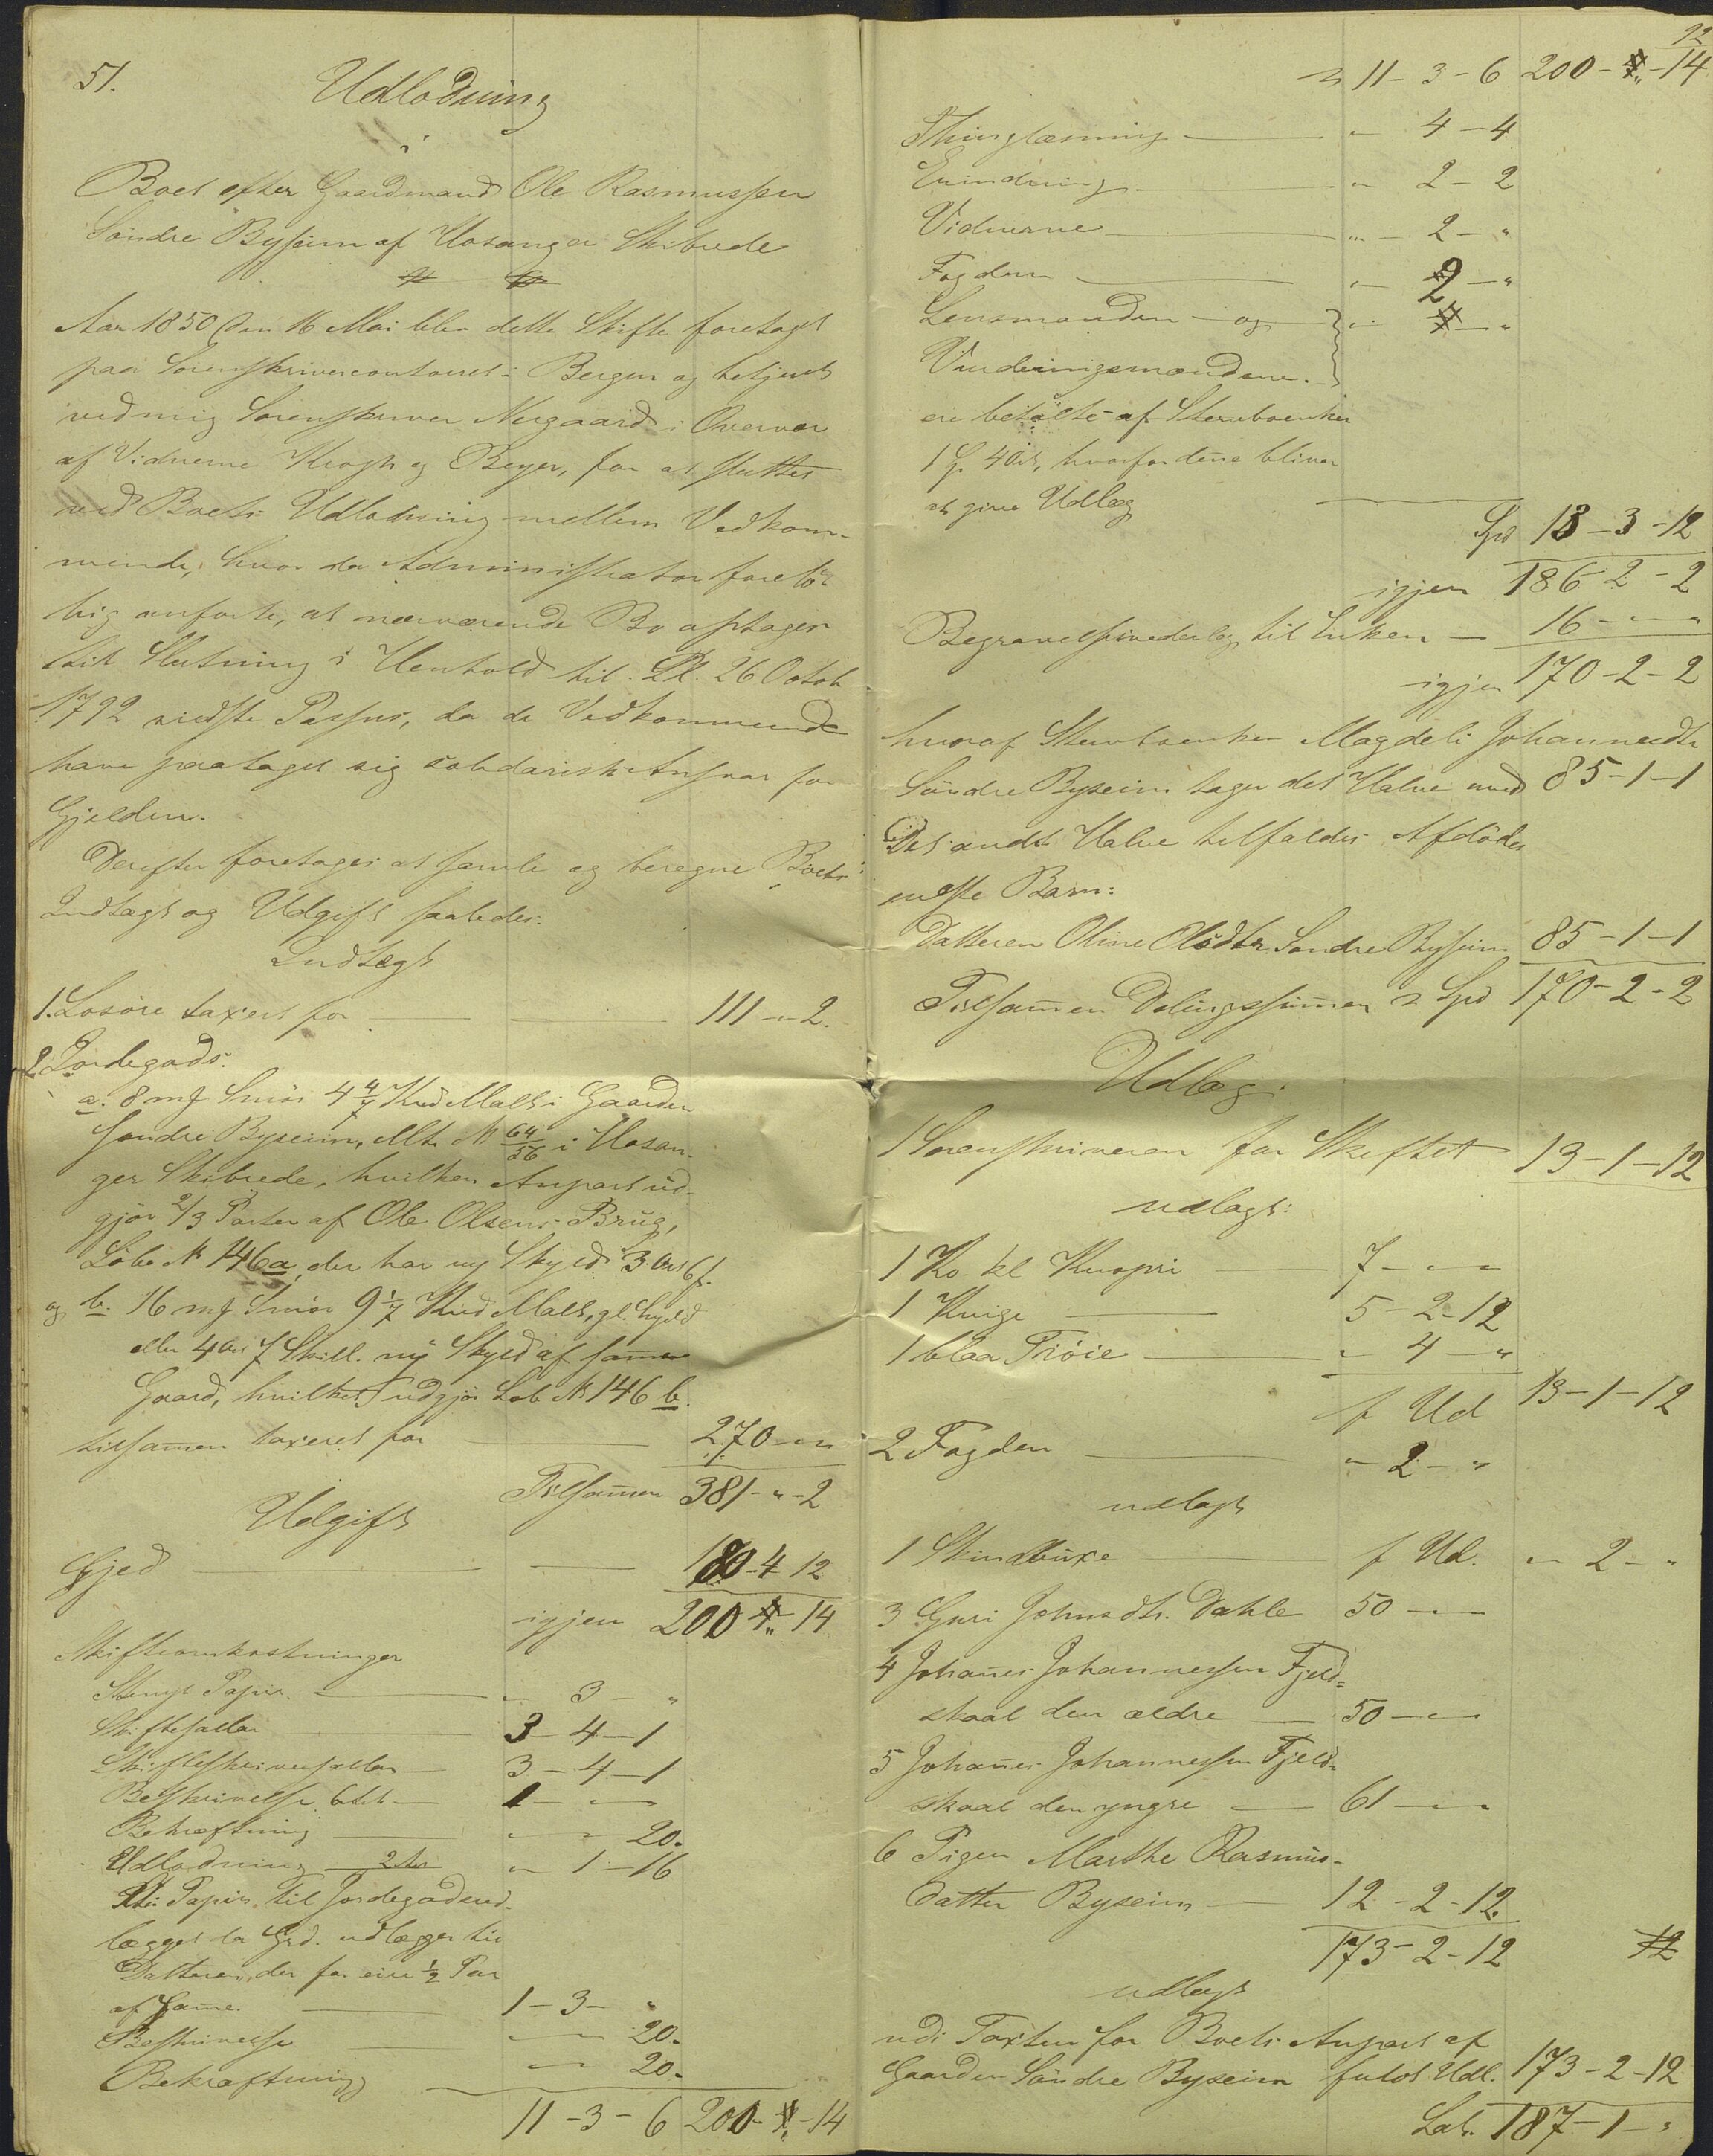 51.
Udlodning
i
Boet efter Gaardmand Ole Rasmussen
Söndre Byseim af Hosanger Skibrede
Aar 1850 den 16 Mai blev dette Skifte foretaget
paa Sorenskrivercontoiret i Bergen og betjent
ved mig Sorenskriver Nergaard i Overvær
af Vidnerne Krogh og Beyer, for at sluttes
ved Boets Udlodning mellem Vedkom-
mende, hvor da Administrator forelö-
big anförte, at nærværende Bo optages
til Slutning i Henhold til Pl. 26 Octob
1792 sidste Passus, da de Vedkommende
have paataget sig solidarisk Ansvar for
Gjelden.
Derefter foretages at samle og beregne Boets
Indtægt og Udgift saaledes:
Indtægt
1. Losöre taxert for 111 - " - 2.
2. Jordegods.
a. 8 m# Smör 4 4/7 Kud Malt i Gaarden
Söndre Byseim, Mt. N 64/56 i Hosan-
ger Skibrede, hvilken Anpart ud-
gjör 2/3 Parter af Ole Olsens Brug,
Löbe N 146 a, der har ny Skyld 3 Ort 6 s.
og b. 16 m# Smör 9 1/7 Kud Malt, gl. Skyld
eller 4 Ort 7 Skill. ny Skyld af samme
Gaard, hvilket udgjör Löb N 146 b.
tilsammen taxeret for 270 - " - "
Tilsammen 381 - " - 2
Udgift
Gjeld 180 - 4 - 12
igjen 200 - " - 14
Skifteomkostninger
Stempl. Papir " - 3 - "
Skiftesallar 3 - 4 - 1
Skifteskriversallar 3 - 4 - 1
Beskrivelse 6 Ark 1 - " - "
Bekræftning " - " - 20.
Udlodning 2 " - 1 - 16
St. Papir til Jordegodsud-
lægget da Grd. udlægges til
Datteren, der for eier 1/2 Par
af samme. 1 - 3 - "
Beskrivelse " - " 20.
Bekræftning " - " 20.
11 - 3 - 6 200 - " - 14
12
11 - 3 - 6 200 - " - 14
Thinglæsning " - 4 - 4
Erindring " - 2 - 2
Vidnerne " - 2 - "
Fogden " - 2 - "
Lensmanden og
Vurderingsmændene.
ere betalte af Stervboenken
1 Sp. 4 Ort, hvorfor denne bliver
at give Udlæg
Spd 13 - 3 - 12
igjen 186 - 2 - 2
Begravelsesvederlag til Enken 16 - " - "
igjen 170 - 2 - 2
hvoraf Stervboenken Magdeli Johannesdtr
Söndre Byseim tager det Halve med 85 - 1 - 1
Det andet Halve tilfalder Afdödes
eneste Barn:
Datteren Oline Olsdtr Söndre Byseim 85 - 1 - 1
Tilsammen Delingssummen Spd 170 - 2 - 2
Udlæg:
1 Sorenskriveren for Skiftet 13 - 1 - 12
udlagt:
1 Ko kl Knopri 7 - " - "
1 Kvige 5 - 2 - 12
1 blaa Tröie " - 4 - "
f Ud 13 - 1 - 12
2 Fogden " - 2 - "
udlagt
1 Skindbuxe f Ud. " - 2 - "
3 Guri Johnsdtr. Dahle 50 - " - "
4 Johanes Johannessen Fjeld=
skaal den ældre 50 - " - "
5 Johanes Johannessen Fjeld-
skaal den yngre 61 - " - "
6 Pigen Marthe Rasmus-
datter Byseim 12 - 2 - 12.
173 - 2 - 12
udlagt
udi Taxten for Boets Anpart af
Gaarden Söndre Byseim fuldt Udl. 173 - 2 - 12
Lat. 187 - 1 - "